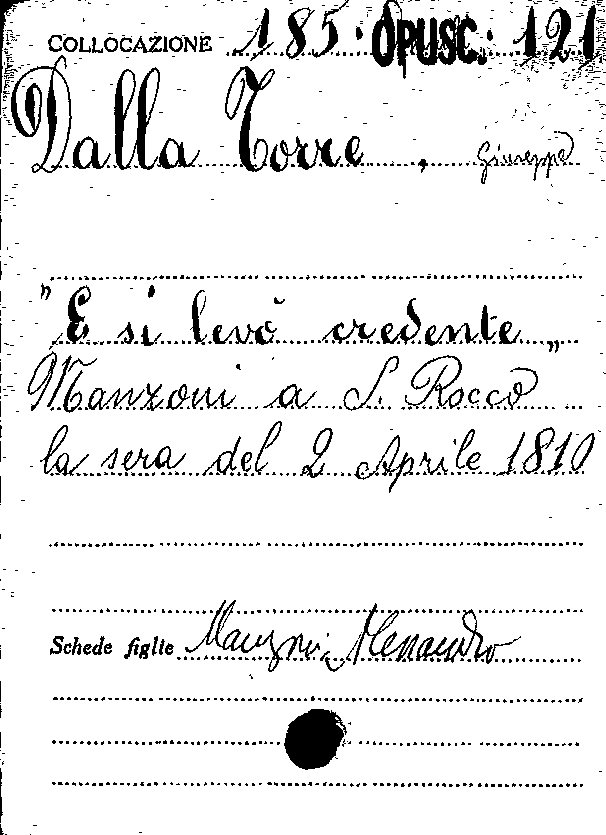 COLLOCAZIONE 185. OPUSC. 121
Dalla Torre, Giuseppe
"E si levò credente„
Manzoni a S. Rocco
la sera del 2 Aprile 1810
Schede figlie Manzoni, Alessandro